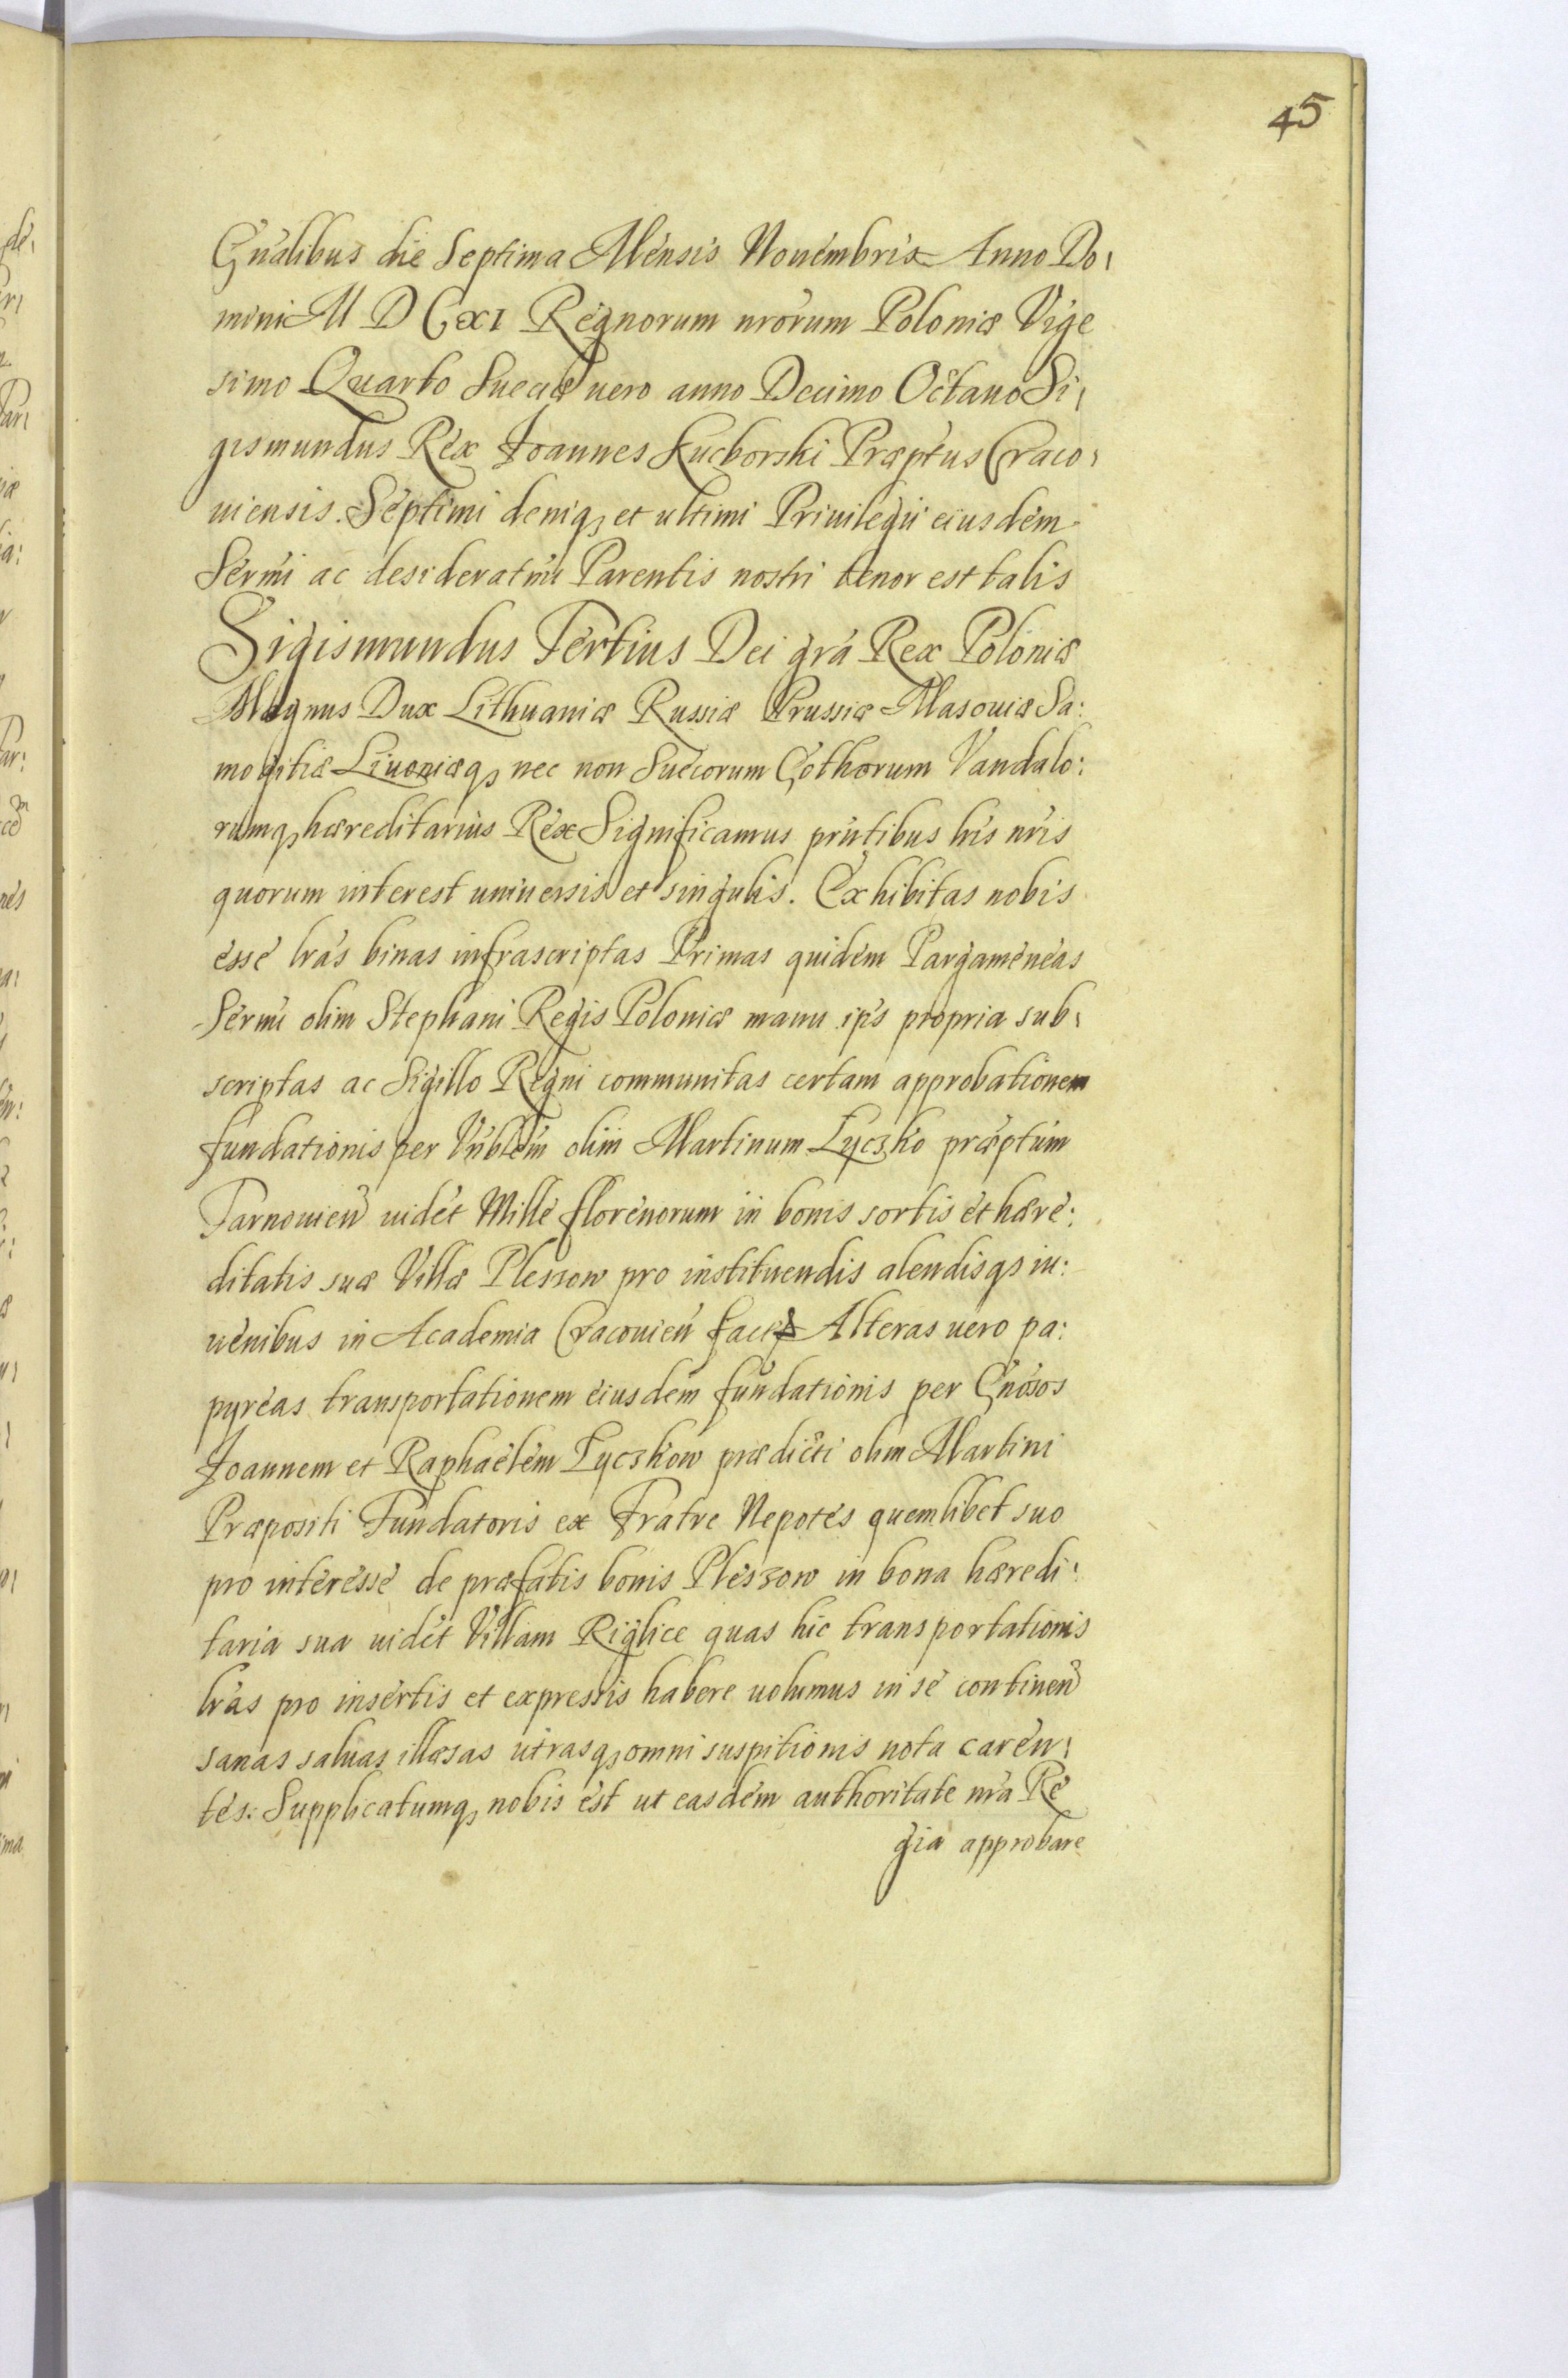 45
Gnalibus die Septima Mensis Nouembris Anno Do,
mini M D C XI Regnorum nrorum Poloniæ Vige
simo Quarto Sueciæ uero anno Decimo Octauo Si,
gismundus Rex Joannes Kuckorski Præptus Craco,
uiensis. Septimi deniq, et ultimi Priuilegii eiusdem
Sermi ac desideratmi Parentis nostri tenor est talis
Sigismundus Tertius Dei gra Rex Poloniæ
Magnus Dux Lithuaniæ Russiæ Prussiæ Masouiæ Sa:
mogitiæ Liuoniæq, nec non Suecorum Gothorum Vandalo:
rumq, hæreditarius Rex Significamus prntibus his nris
quorum interest uniuersis et singulis. Exhibitas nobis
esse lras binas infrascriptas Primas quidem Pargameneas
Sermi olim Stephani Regis Poloniæ manu ips propria sub,
scriptas ac Sigillo Regni communitas certam approbationem
fundationis per Vnblem olim Martinum Lyczko præptum
Tarnouien uidet Mille florenorum in bonis sortis et hære:
ditatis suæ Villæ Pleszow pro instituendis alendisqs iu:
uenibus in Academia Cracouien Alteras uero pa:
pyreas transportationem eiusdem fundationis per Gnosos
Joannem et Raphaelem Lyczkow prædicti olim Martini
Præpositi Fundatoris ex Fratre Nepotes quemlibet suo
pro interesse de præfatis bonis Pleszow in bona hæredi:
taria sua uidet Villam Riglice quas hic transportationis
lras pro insertis et expressis habere uolumus in se continen
sanas saluas illæsas utrasq, omni suspitionis nota caren,
tes. Supplicatumq, nobis est ut easdem authoritate nra Re
gia approbare